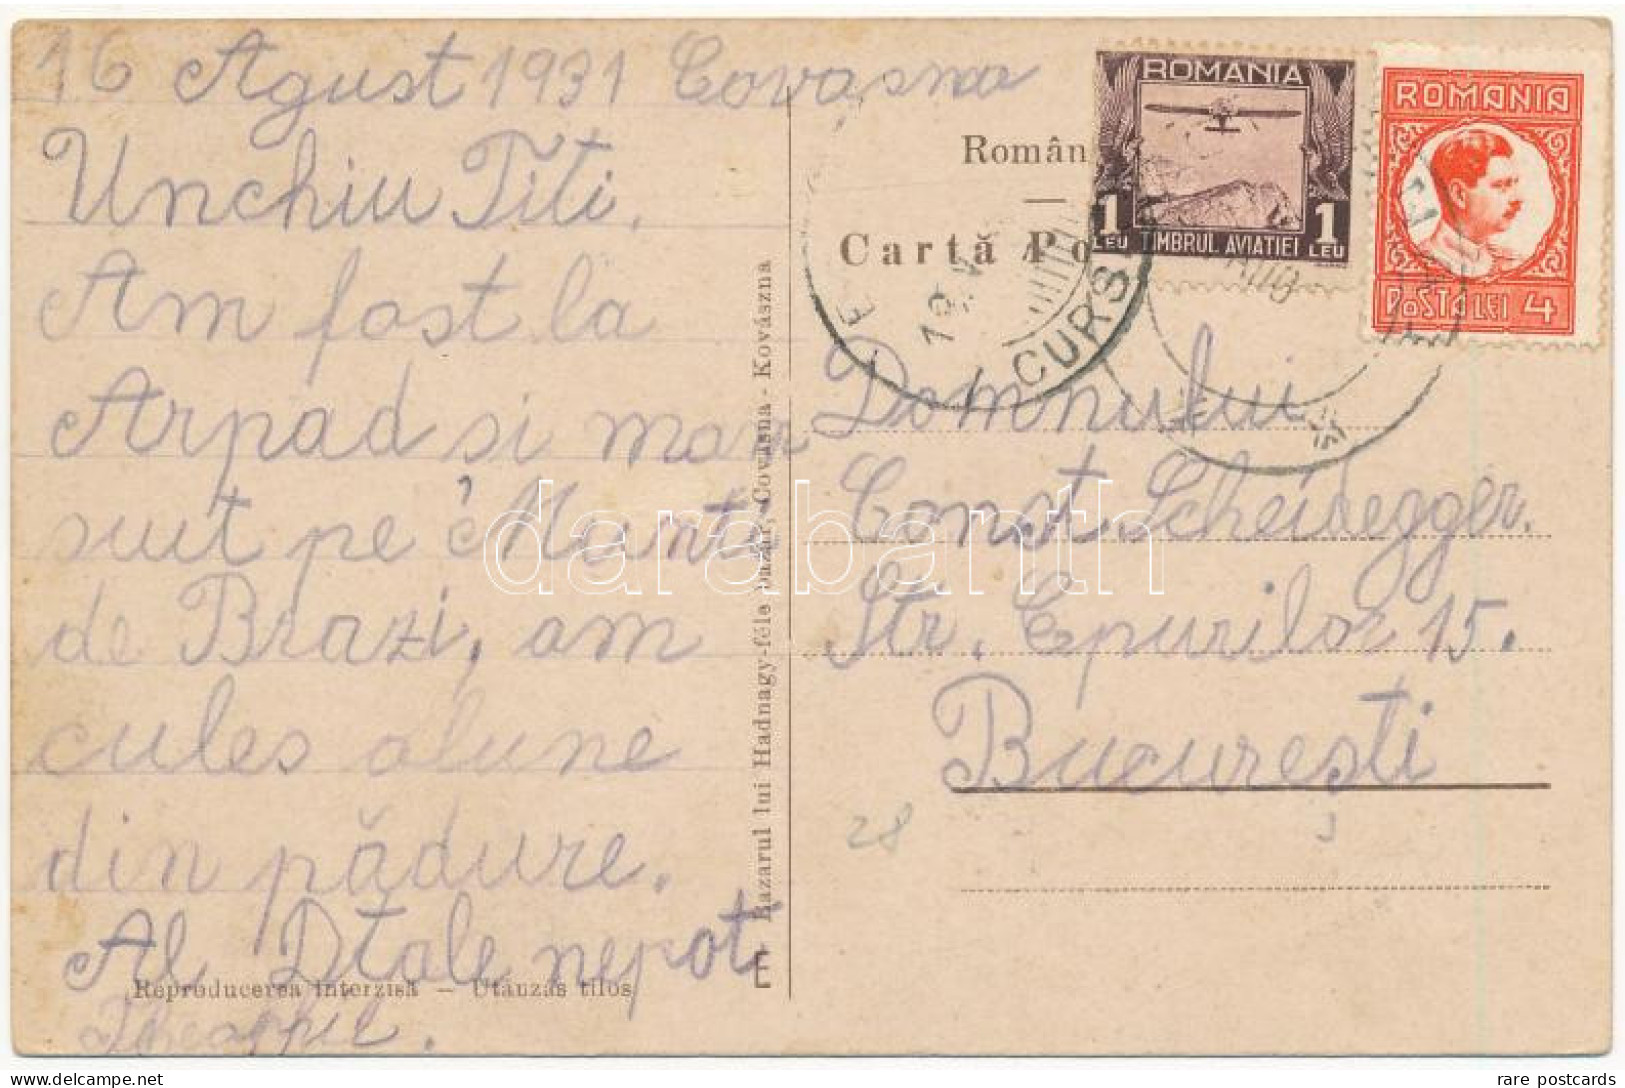 16 Agust 1931 Covasna
Unchiu Titi.
Am fost la
Arpad si mam
suit pe Munti
de Brazi, am
cules alune
din pădure.
Al Dtale nepot
Reproducerea interzisă — Utánzás tilos
Bazarul lui Hadnagy-féle bazár, Covasna - Kovászna
Român
Cartă Po
ROMANIA
1 LEU TIMBRUL AVIATIEI 1 LEU
ROMANIA
POSTA LEI 4
CURS
Domnului
Const. Scheidegger.
Str. Epurilor 15.
București
28
darabanth
delcampe.net
rare postcards